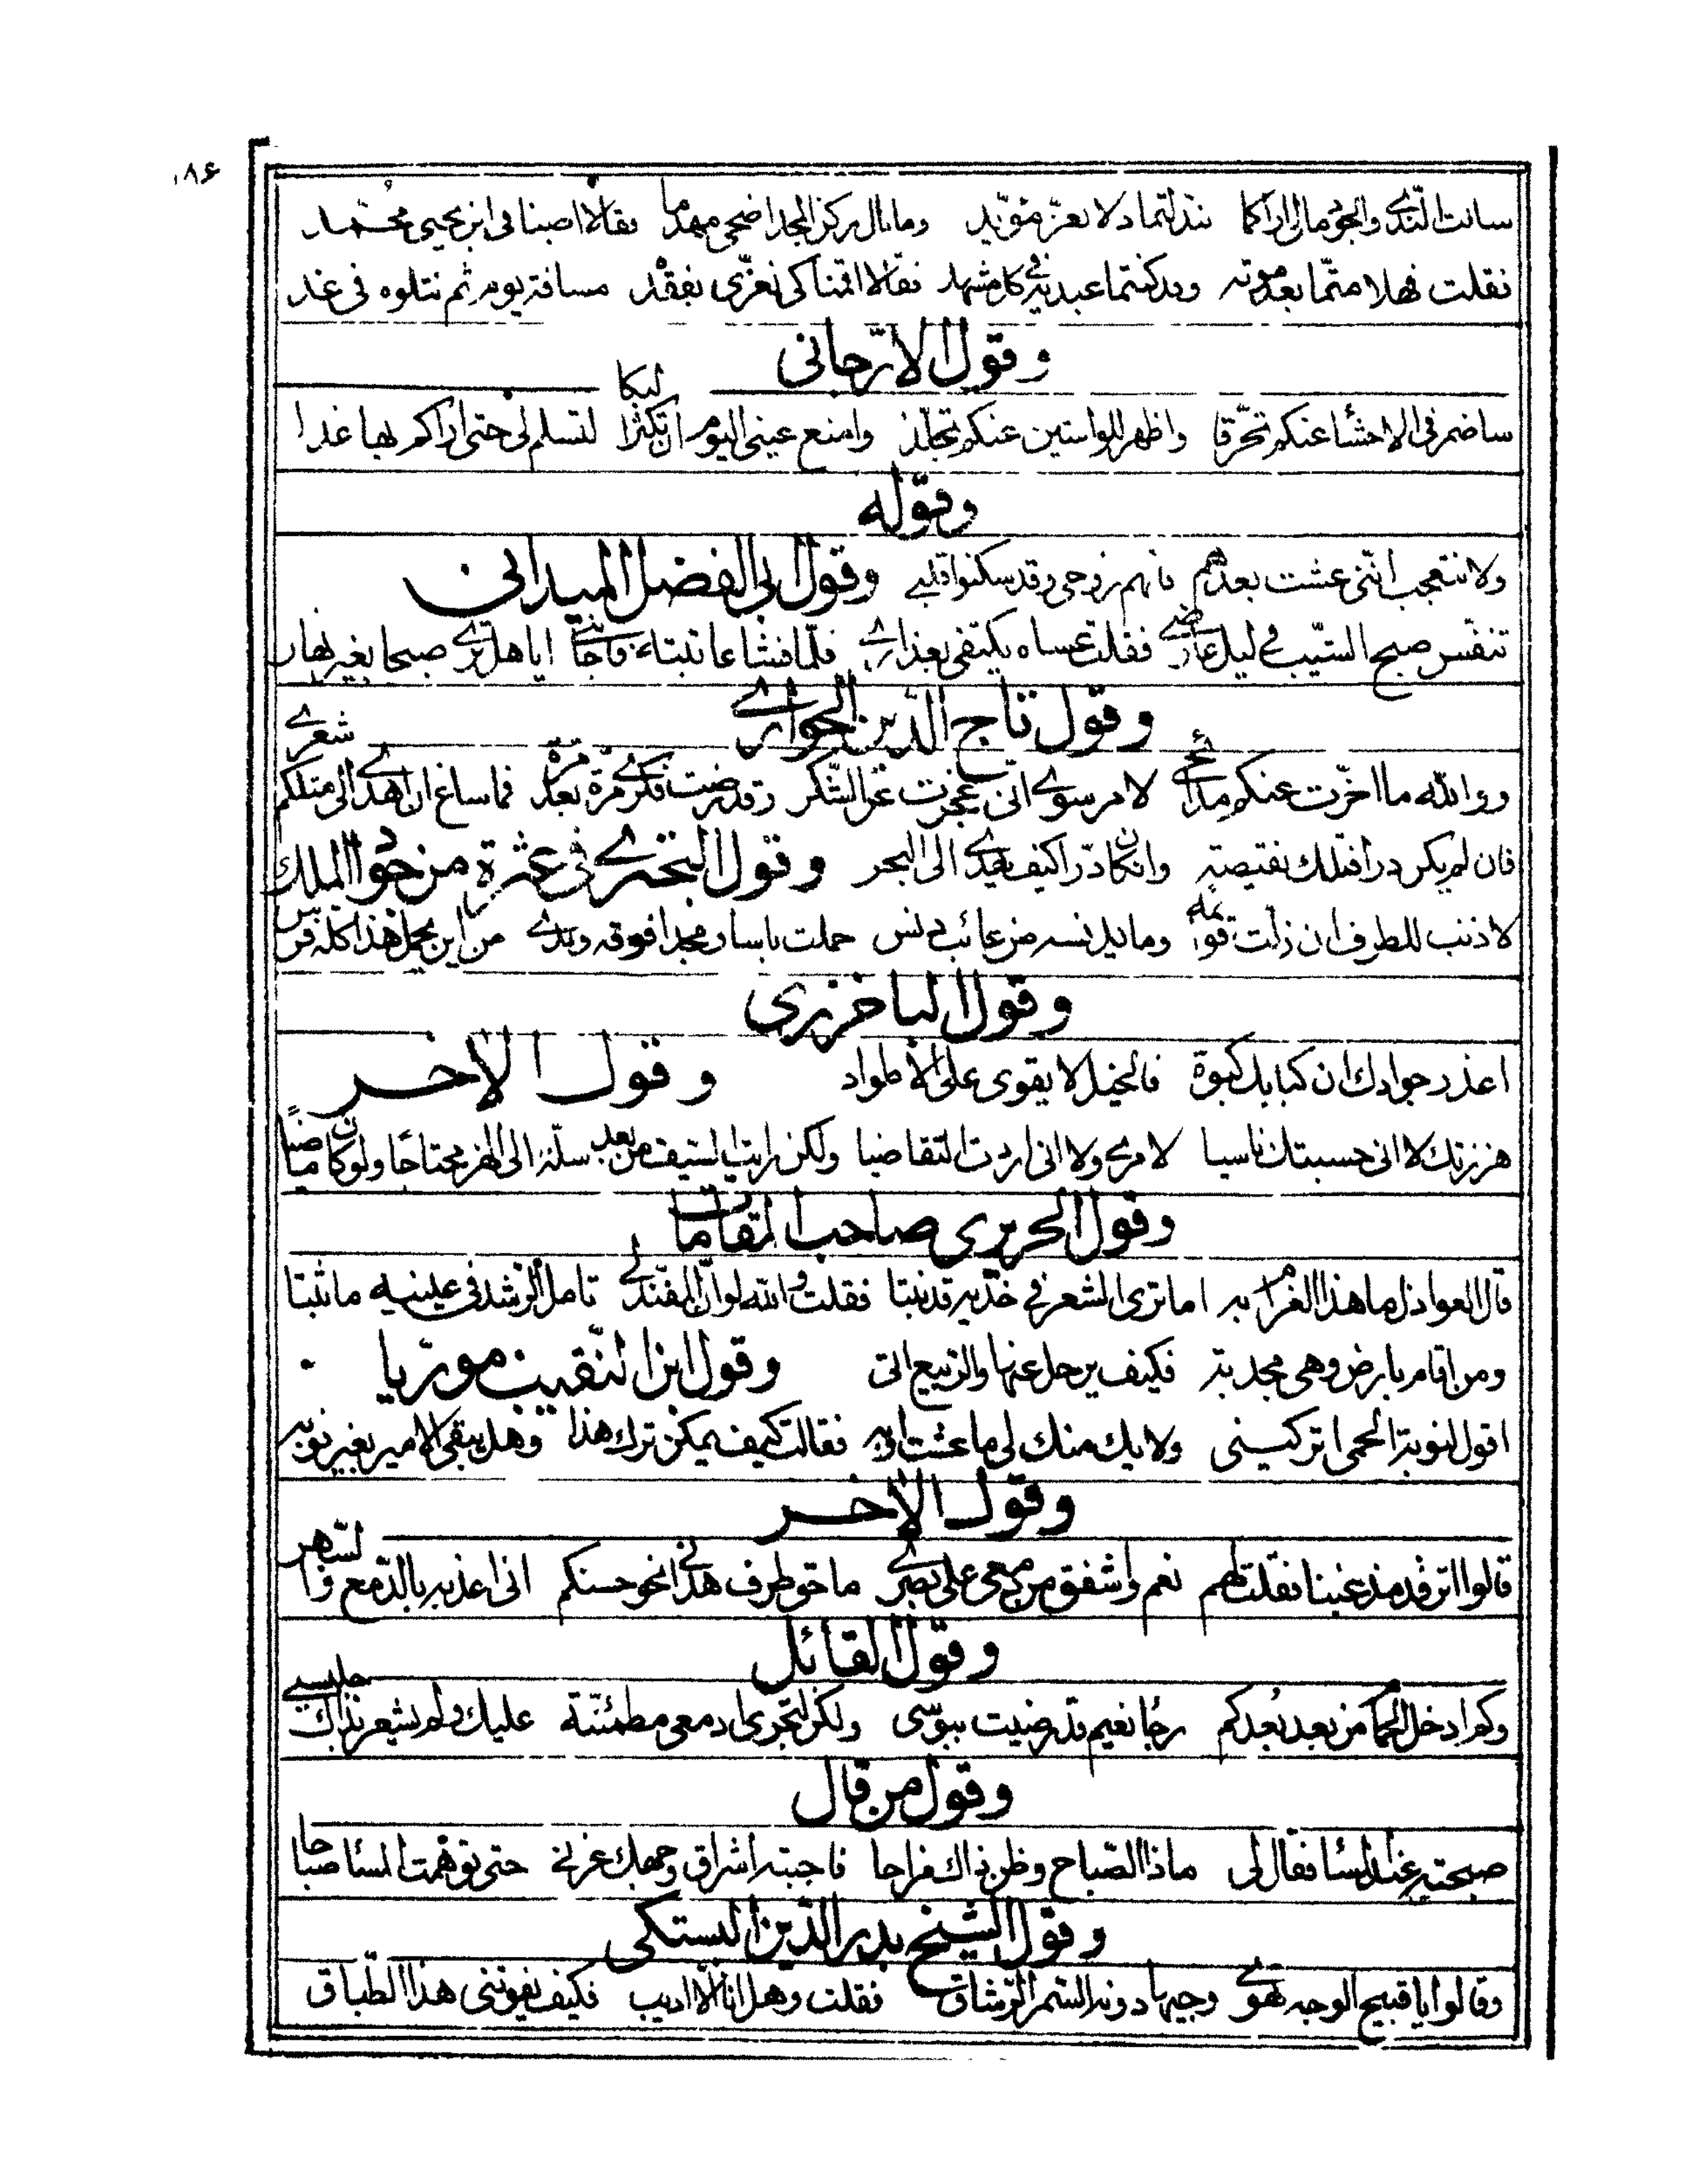 ١٨۶
سالت الندى والجود مالى اراكما تبدلتما ذلا بعز مؤبد وما بال ركن المجد اضحى مهدما فقالا اصبنا فى ابن يحيى محمد
فقلت فهلا متّما بعد موته وقد كنتما عبديه فى كل مشهد فقالا اقمنا كى نعزّى بفقده مسافة يوم ثم نتلوه فى غد
وقول الارّجانى
ساضمر فى الاحشا عنكم تحرّقا واظهر للواشين عنكم تجلّدا وامنع عينى اليوم ان تكثر البكا لتسلم لى حتى اراكم بها غدا
وقوله
ولا تتعجب انّنى عشت بعدهم فانهم روحى وقد سكنوا قلبى وقول ابى الفضل الميدانى
تنفّس صبح الشيب فى ليل عارضى فقلت عساه يكتفى بعذارى فلمّا فشا عاتبته فاجابنى ايا هل ترى صبحا بغير نهار
وقول تاج الدّين الجوارى
ووالله ما اخّرت عنكم مدائحى لامر سوى انّى عجزت عن الشكر وقد رضت فكرى مرّة بعد مرّة فما ساغ ان اهدى الى مثلكم شعرى
فان لم يكن درا فتلك نقيصة وان كان درّا كيف يهدى الى البحر وقول البحترى فى عثرة من جواد الملك
لا ذنب للطرف ان زلّت قوائمه وما يدنسه من عائب دنس حملت باسا ومجدا فوقه وندى من اين يحمل هذا كله فرس
وقول الباخرزى
اعذر جوادك ان كبا بك كبوة فالخيل لا يقوى على الاطواد وقول الاخر
هززتك لا انى حسبتك ناسيا لامرى ولا انى اردت التقاضيا ولكن رايت السيف من بعد سلّه الى الهز محتاجا ولو كان ماضيا
وقول الحريرى صاحب المقامات
قال العواذل ما هذا الغرام به اما ترى الشعر فى خدّيه قد نبتا فقلت والله لو انّ المفنّد لى تامل الرشد فى عينيه ما ثبتا
ومن اقام بارض وهى مجدبة فكيف يرحل عنها والربيع اتى وقول ابن النّقيب مورّيا
اقول لنوبة الحمى اتركينى ولا يك منك لى ما عشت اوبه فقالت كيف يمكن ترك هذا وهل يبقى الامير بغير نوبه
وقول الاخر
قالوا اترقد مذ غبنا فقلت لهم نعم واشفق من دمعى على بصرى ما حق طرف هدانى نحو حسنكم انى اعذبه بالدّمع والسّهر
وقول القائل
وكم ادخل الحمام من بعد بعدكم رجا نعيم قد رضيت ببوسى ولكن لتجرى ادمعى مطمئنّة عليك ولم يشعر بذاك جليسى
وقول من قال
صبحته عند المسا فقال لى ماذا الصّباح وظن ذاك مزاحا فاجبته اشراق وجهك غرنى حتى توهّمت المسا صباحا
وقول الشيخ بدر الدّين البستكى
وقالوا يا قبيح الوجه تهوى وجيها دونه السّمر الرّشاق فقلت وهل انا الا اديب فكيف يفوتنى هذا الطّباق